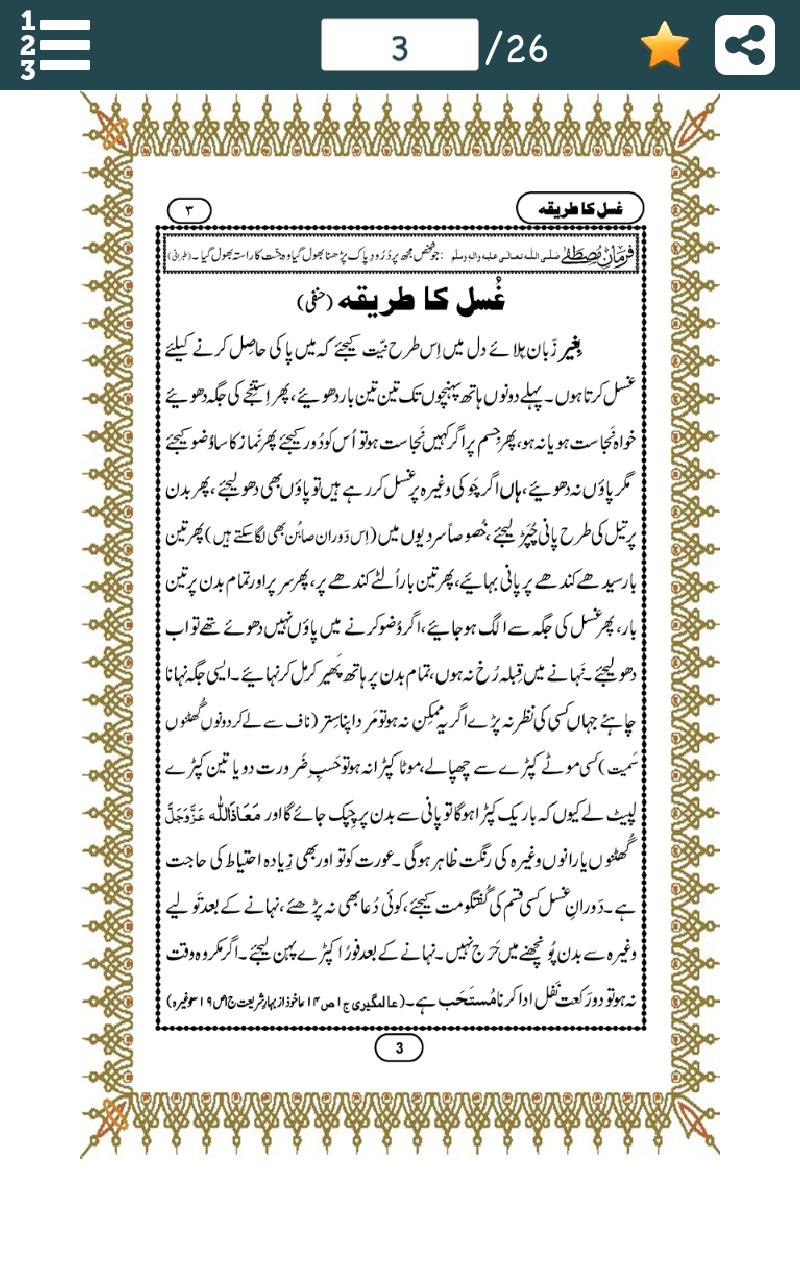 1 2 3
3 /26
غسل کا طریقہ
۳
فرمانِ مصطفٰے صلی اللہ تعالٰی علیہ والہٖ وسلم : جو شخص مجھ پر دُرُودِ پاک پڑھنا بھول گیا وہ جنت کا راستہ بھول گیا ۔ (طبرانی)
غُسل کا طریقہ (حنفی)
بغیر زَبان ہِلائے دل میں اِس طرح نیّت کیجئے کہ میں پاکی حاصِل کرنے کیلئے
غسل کرتا ہوں۔ پہلے دونوں ہاتھ پہنچوں تک تین تین بار دھوئیے، پھر اِستنجے کی جگہ دھوئیے
خواہ نَجاست ہو یا نہ ہو، پھر جسم پر اگر کہیں نَجاست ہو تو اُس کو دُور کیجئے پھر نَماز کا سا وُضو کیجئے
مگر پاؤں نہ دھوئیے، ہاں اگر چَوکی وغیرہ پر غسل کر رہے ہیں تو پاؤں بھی دھو لیجئے ، پھر بدن
پر تیل کی طرح پانی چُپڑ لیجئے ، خُصوصاً سردیوں میں (اِس دَوران صابُن بھی لگا سکتے ہیں) پھر تین
بار سیدھے کندھے پر پانی بہائیے، پھر تین بار اُلٹے کندھے پر، پھر سر پر اور تمام بدن پر تین
بار، پھر غسل کی جگہ سے الگ ہو جائیے، اگر وُضو کرنے میں پاؤں نہیں دھوئے تھے تو اب
دھو لیجئے ۔ نَہانے میں قِبلہ رُخ نہ ہوں، تمام بدن پر ہاتھ پَھیر کر مل کر نہائیے ۔ ایسی جگہ نہانا
چاہئے جہاں کسی کی نظر نہ پڑے اگر یہ مُمکِن نہ ہو تو مَرد اپنا سِتر (ناف سے لے کر دونوں گُھٹنوں
سَمیت) کسی موٹے کپڑے سے چھپا لے، موٹا کپڑا نہ ہو تو حَسبِ ضَرورت دو یا تین کپڑے
لپیٹ لے کیوں کہ باریک کپڑا ہوگا تو پانی سے بدن پر چِپک جائے گا اور مَعَاذَاللّٰہ عَزَّوَجَلَّ
گُھٹنوں یا رانوں وغیرہ کی رنگت ظاہر ہوگی ۔ عورت کو تو اور بھی زِیادہ احتیاط کی حاجت
ہے۔ دَورانِ غسل کسی قسم کی گُفتگو مت کیجئے، کوئی دُعا بھی نہ پڑھئے، نہانے کے بعد تَولیے
وغیرہ سے بدن پُونچھنے میں حَرَج نہیں ۔ نہانے کے بعد فورًا کپڑے پہن لیجئے ۔ اگر مکروہ وقت
نہ ہو تو دو رَکعت نَفل ادا کرنا مُستَحَب ہے۔ (عالمگیری ج۱ ص۱۴ ماخوذ از بہارِ شریعت ج۱ ص۳۱۹ وغیرہ)
3